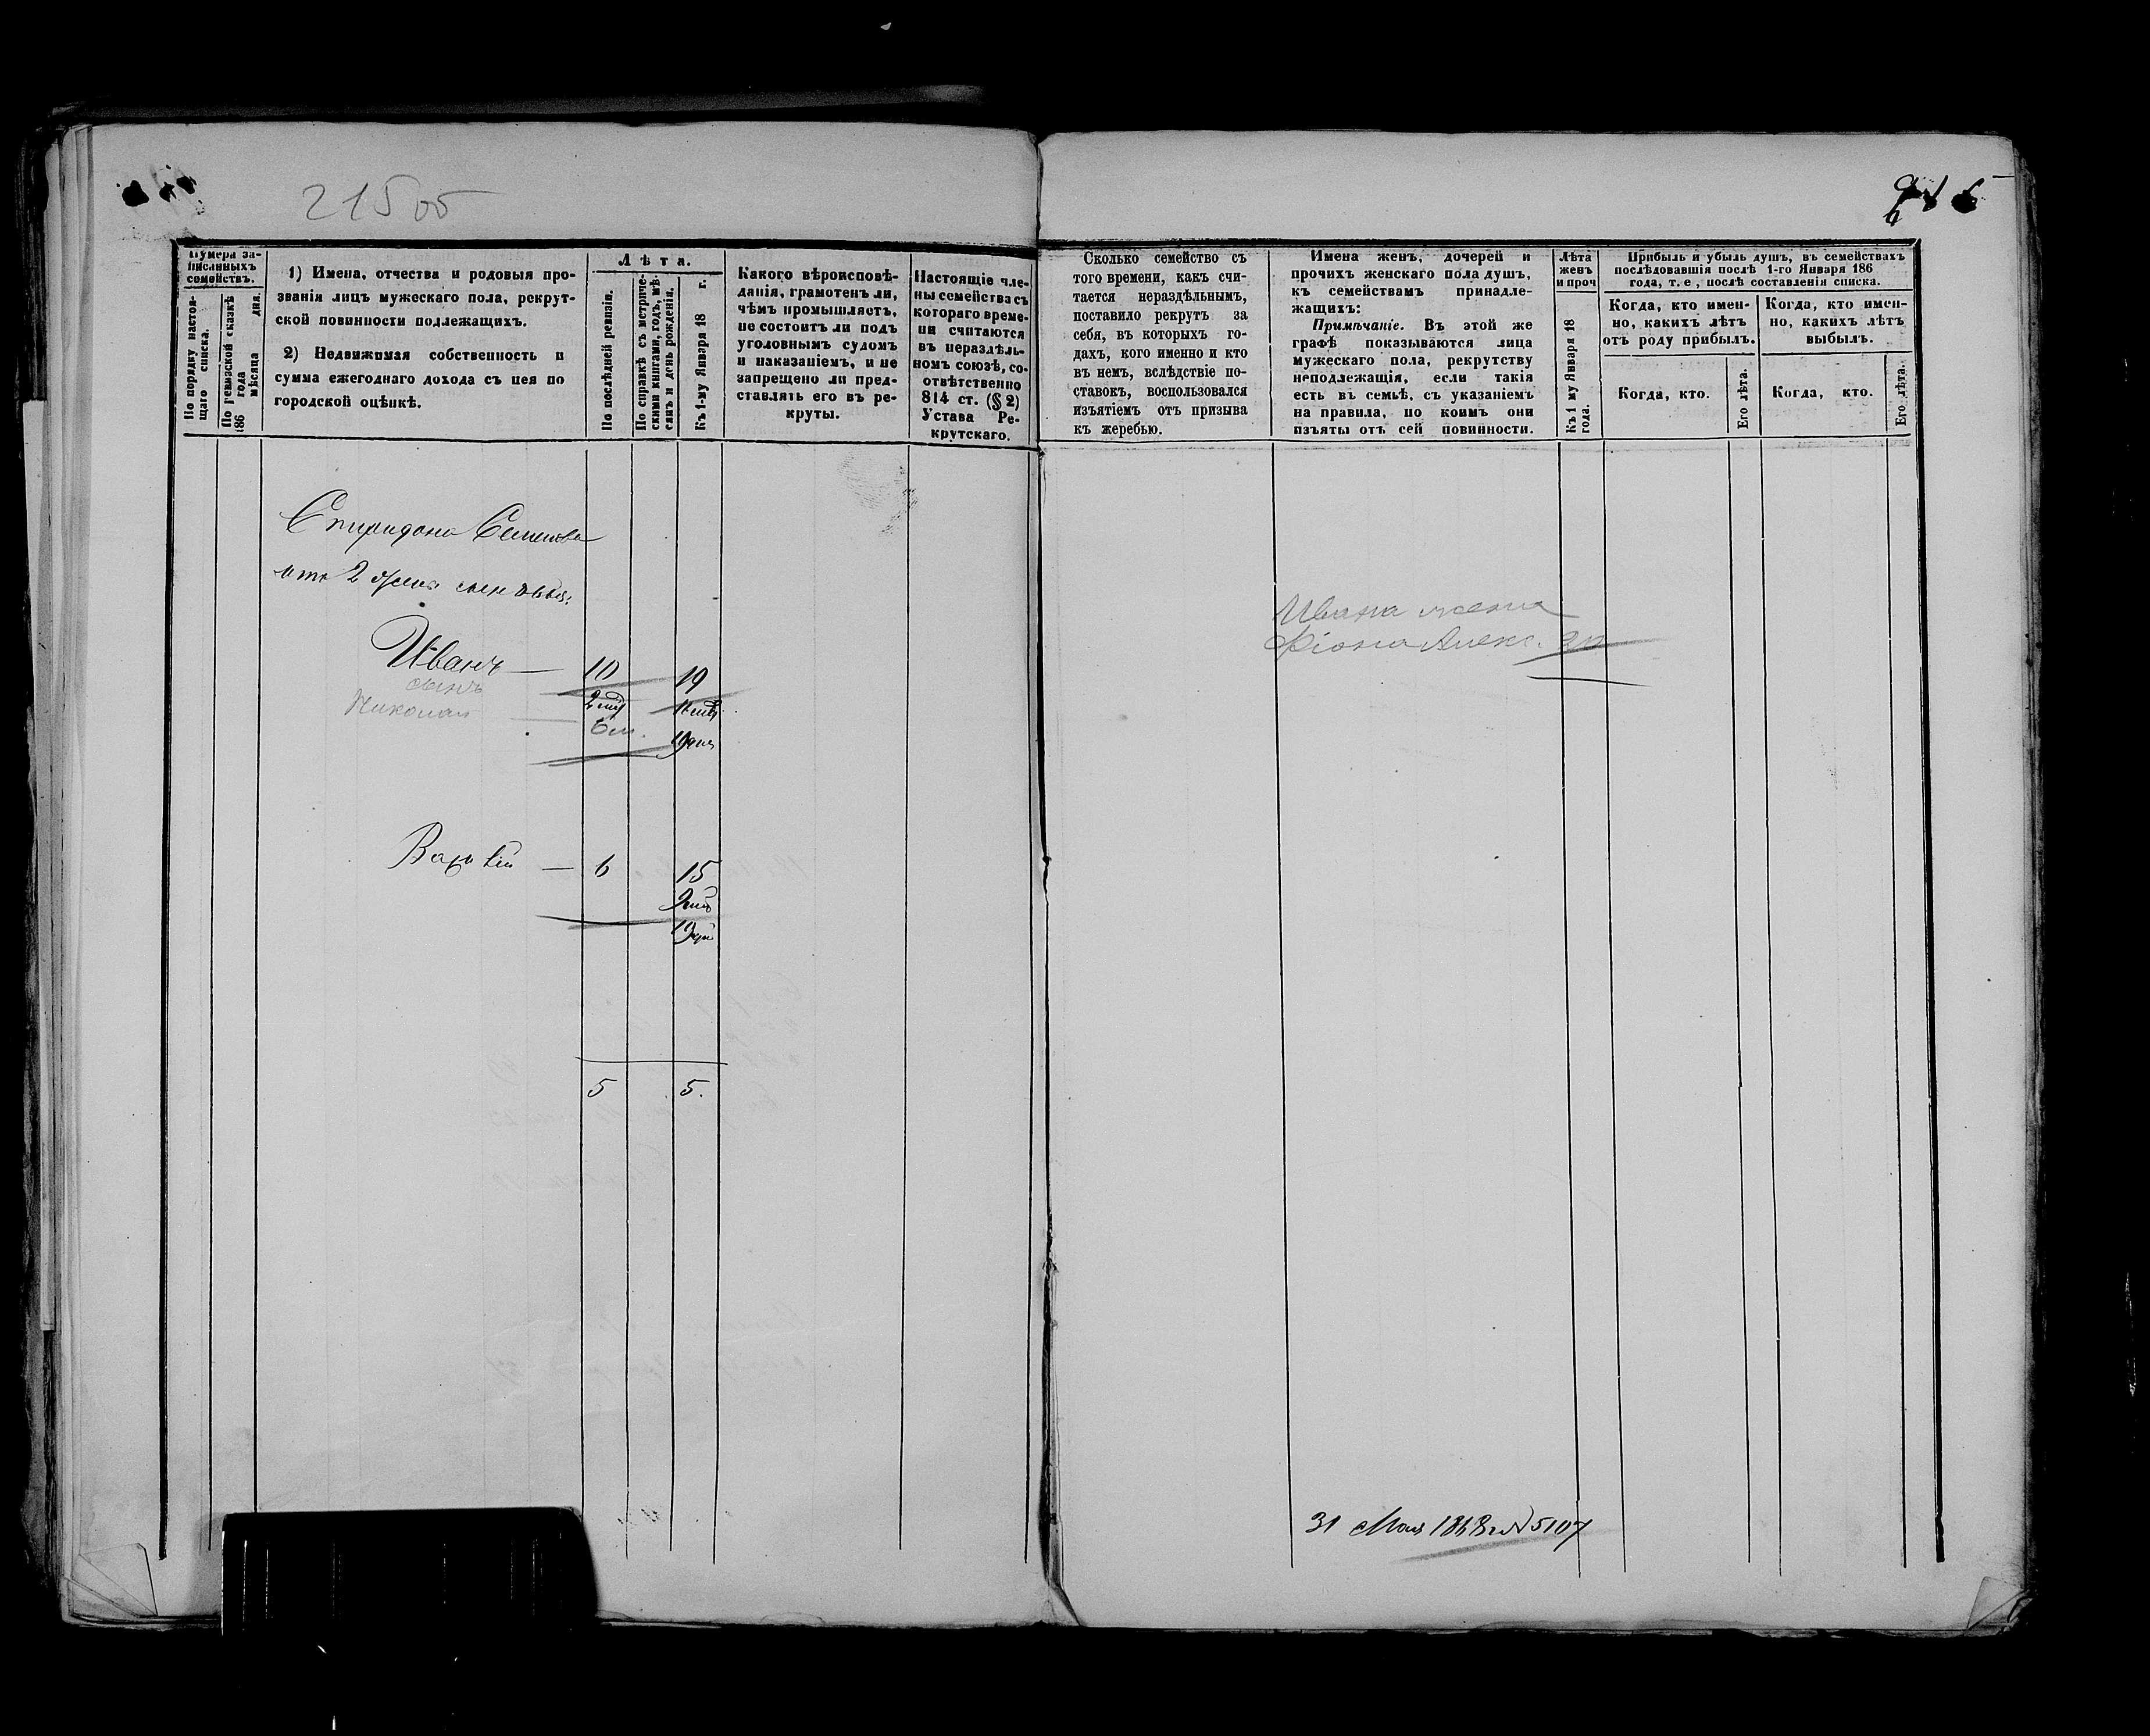 21500
Нумера за-
писанныхъ
семействъ.
По порядку настоя-
щаго списка.
По ревизской сказкѣ
186 года
мѣсяца дня.
1) Имена, отчества и родовыя про-
званія лицъ мужескаго пола, рекрут-
ской повинности подлежащихъ.
2) Недвижимая собственность и
сумма ежегоднаго дохода съ нея по
городской оцѣнкѣ.
Лѣта.
По послѣдней ревизіи.
По справкѣ съ метриче-
скими книгами, годъ, мѣ-
сяцъ и день рожденія.
Къ 1-му Января 18 г.
Какого вѣроисповѣ-
данія, грамотенъ ли,
чѣмъ промышляетъ,
не состоитъ ли подъ
уголовнымъ судомъ
и наказаніемъ, и не
запрещено ли пред-
ставлять его въ ре-
круты.
Настоящіе чле-
ны семейства съ
котораго време-
ни считаются
въ нераздѣль-
номъ союзѣ, со-
отвѣтственно
814 ст. (§ 2)
Устава Ре-
крутскаго.
Спиридона Семенова
2 сыновья:
Иванъ — 10 19
сынъ
Николай
6 м.
Василій — 6 15
5 5.
Сколько семейство съ
того времени, какъ счи-
тается нераздѣльнымъ,
поставило рекрутъ за
себя, въ которыхъ го-
дахъ, кого именно и кто
въ немъ, вслѣдствіе по-
ставокъ, воспользовался
изъятіемъ отъ призыва
къ жеребью.
Имена женъ, дочерей и
прочихъ женскаго пола душъ,
къ семействамъ принадле-
жащихъ:
Примѣчаніе. Въ этой же
графѣ показываются лица
мужескаго пола, рекрутству
неподлежащія, если такія
есть въ семьѣ, съ указаніемъ
на правила, по коимъ они
изъяты отъ сей повинности.
Лѣта
женъ
и проч
Къ 1 му Января 18
года.
Прибыль и убыль душъ, въ семействахъ
послѣдовавшія послѣ 1-го Января 186
года, т. е, послѣ составленія списка.
Когда, кто имен-
но, какихъ лѣтъ
отъ роду прибылъ.
Когда, кто имен-
но, какихъ лѣтъ
выбылъ.
Когда, кто.
Его лѣта.
Когда, кто.
Его лѣта.
Ивана жена
Фіона Алекс.
31 Мая 1868 г. № 5107